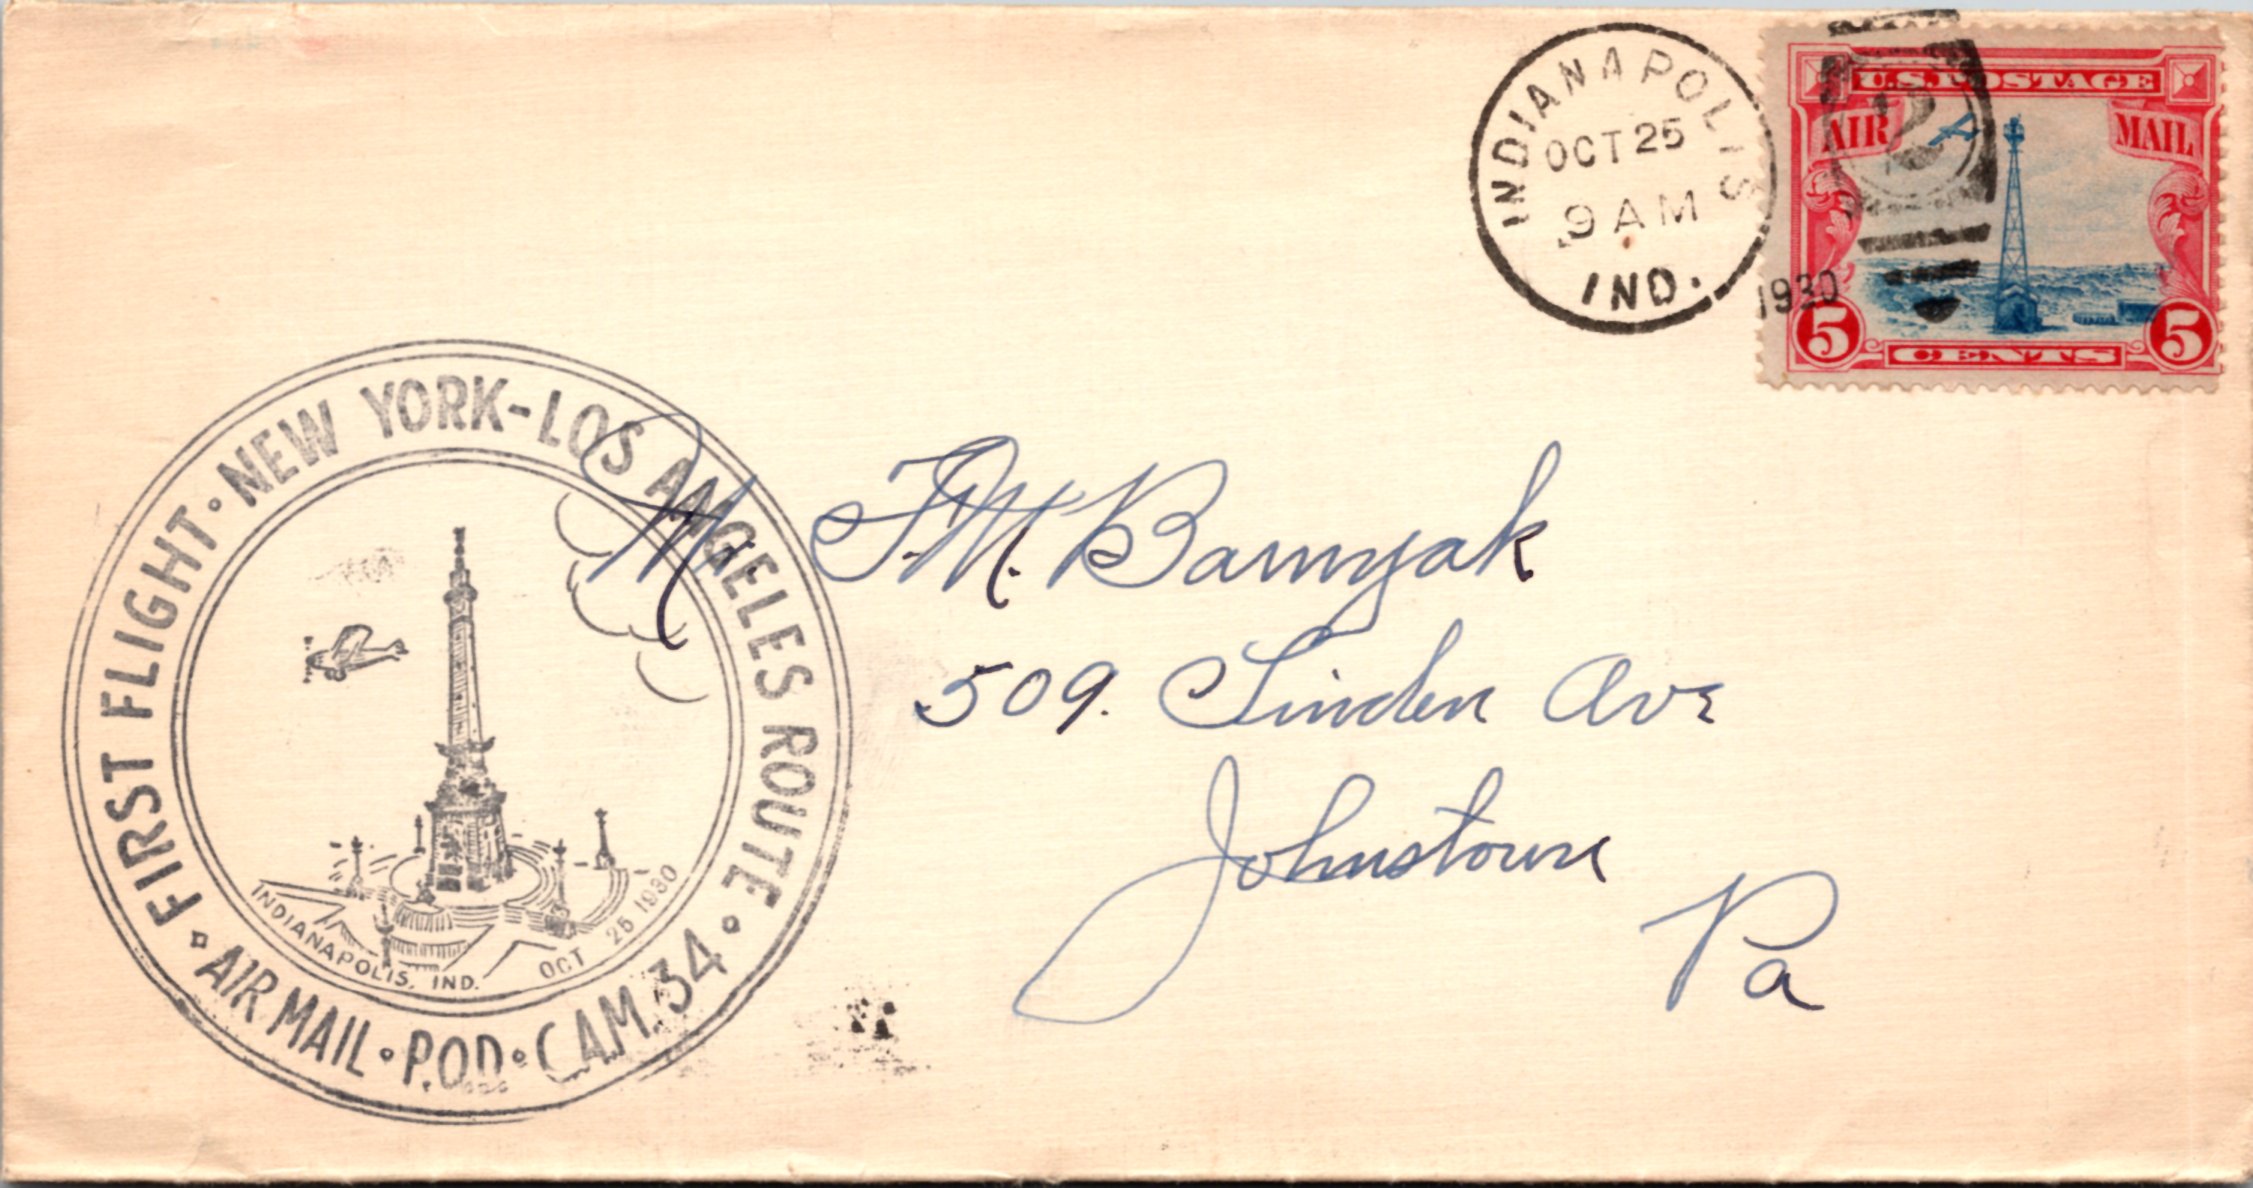 INDIANAPOLIS
OCT 25
9 AM
1930
IND.
U.S. POSTAGE
AIR MAIL
5 CENTS 5
FIRST FLIGHT · NEW YORK-LOS ANGELES ROUTE ·
AIR MAIL · P.O.D. · C.A.M. 34 ·
INDIANAPOLIS, IND. OCT 25 1930
Mr. F.M. Barnyak
509. Linden Ave
Johnstown
Pa